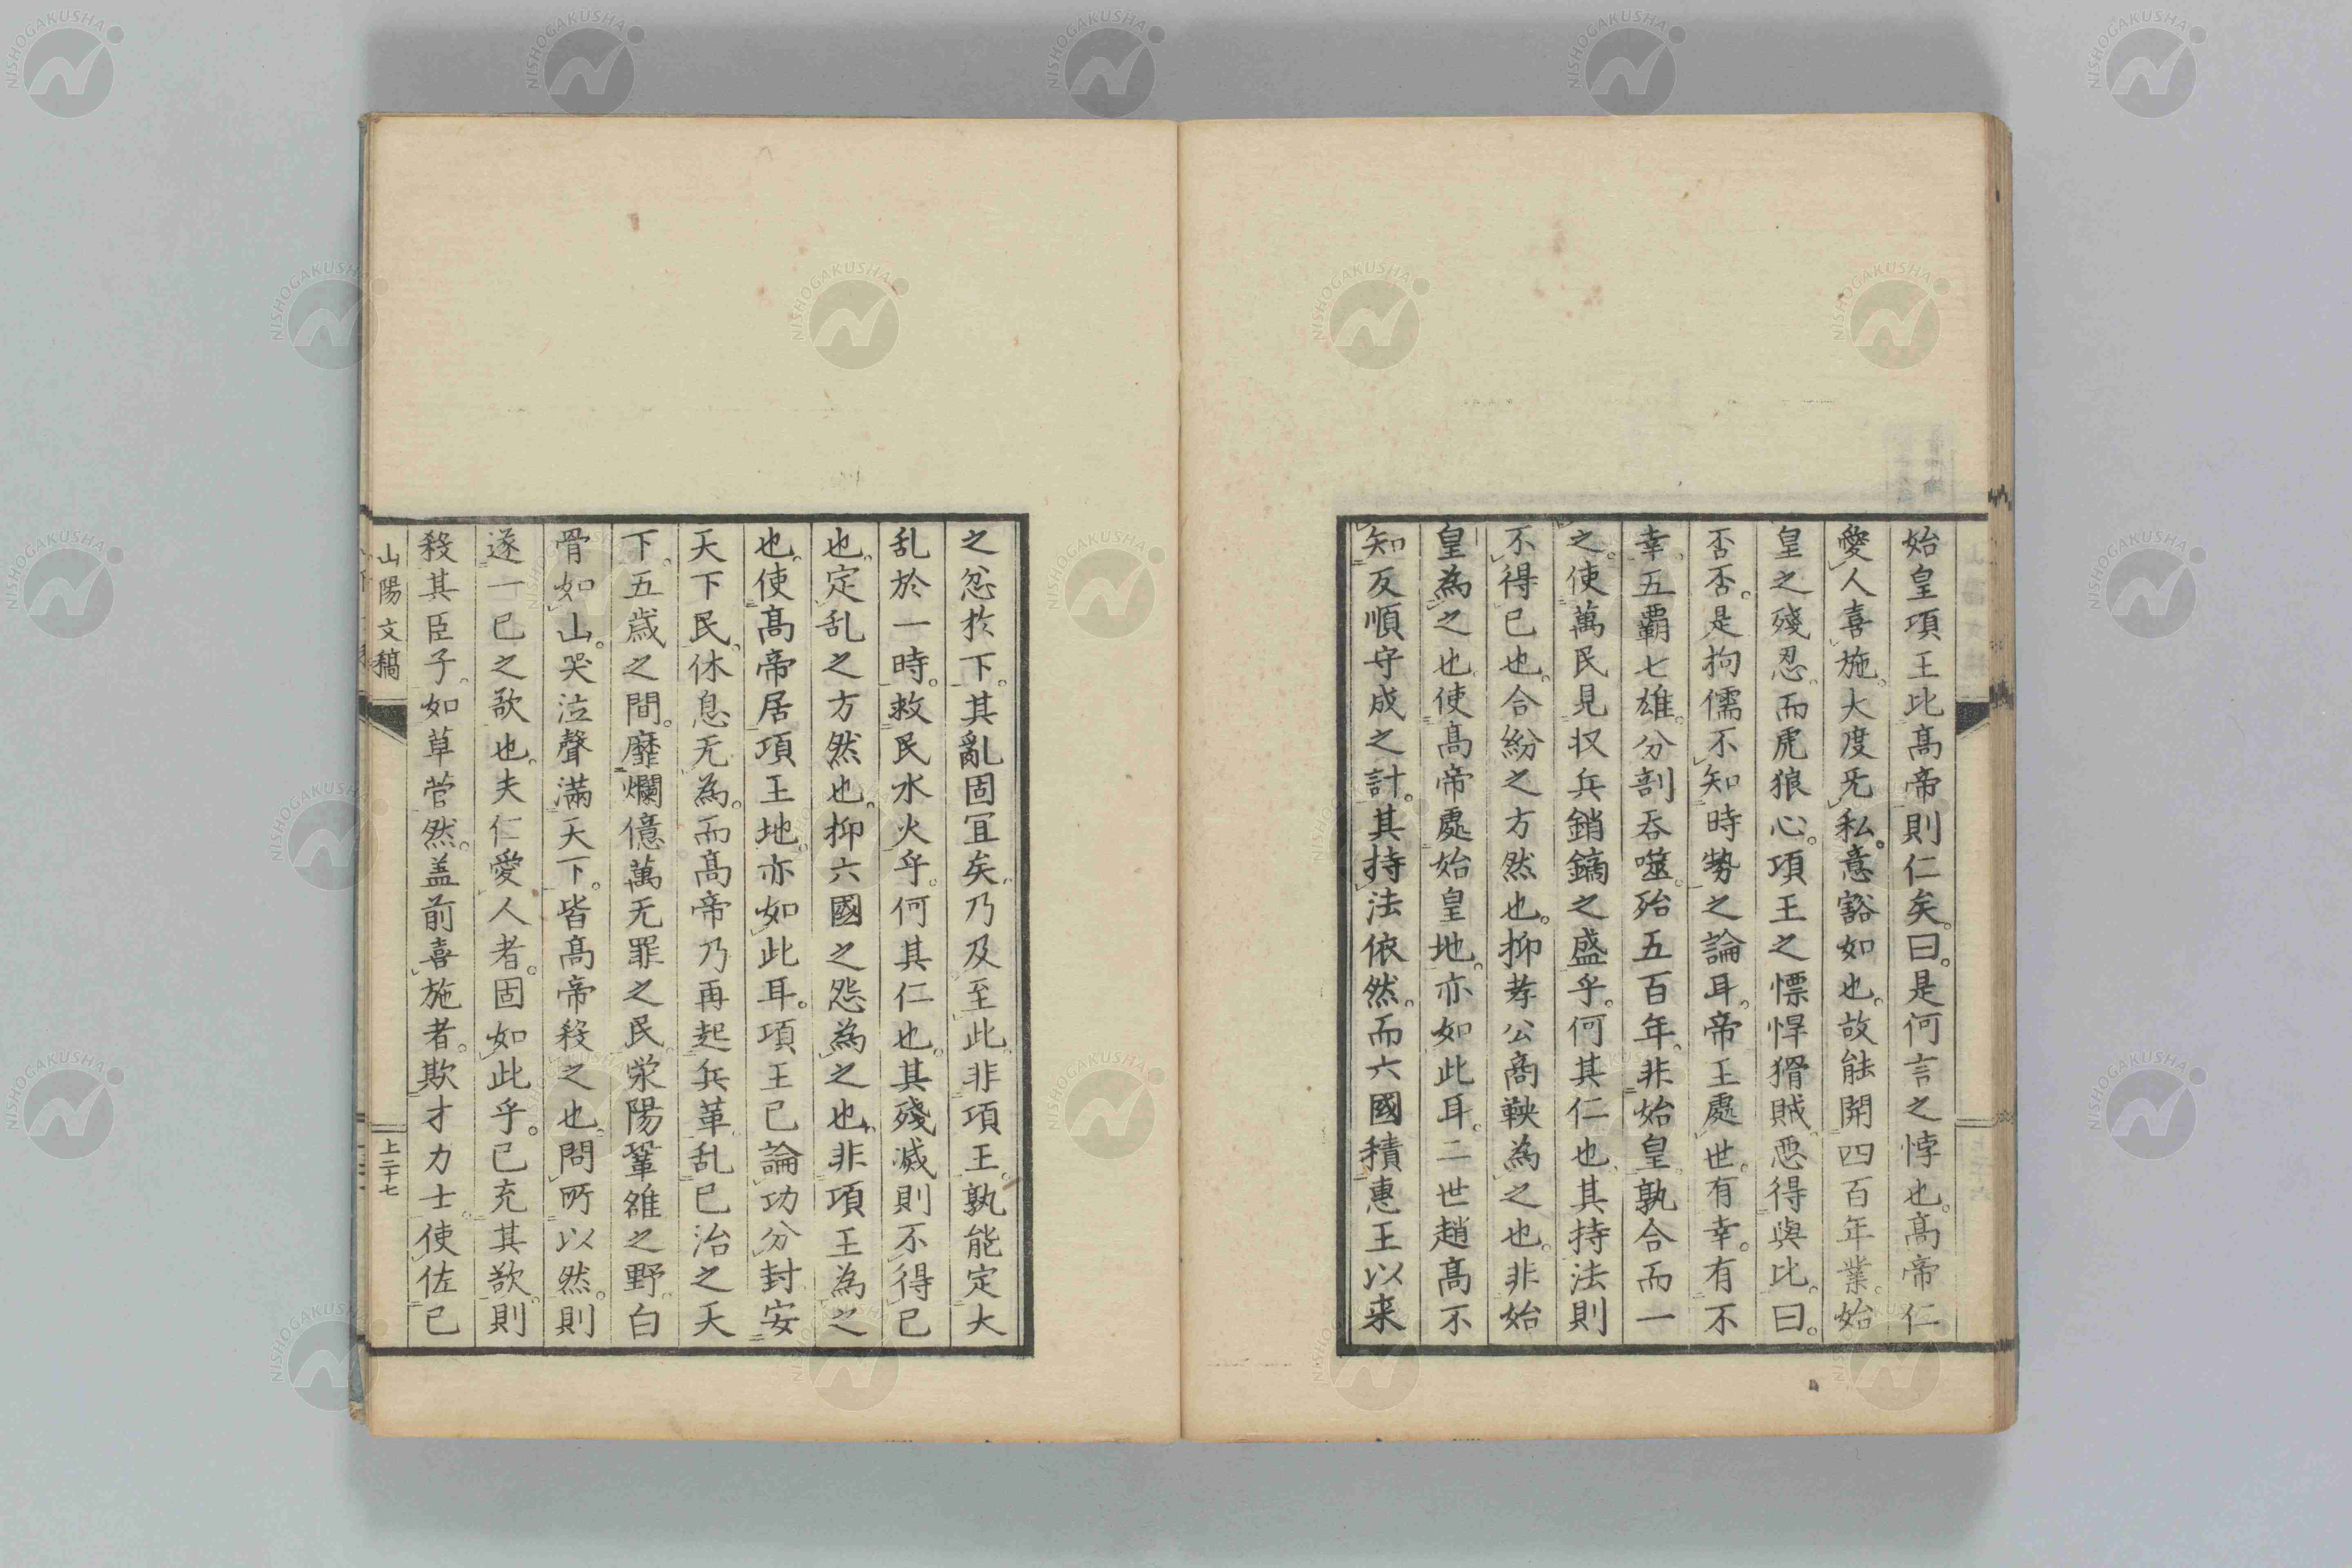 始皇項王比髙帝則仁矣。曰。是何言之悖也。髙帝仁
愛人喜施。大度旡私。意豁如也。故能開四百年業。始
皇之殘忍。而虎狼心。項王之慓悍猾賊。惡得與比。曰。
否否。是拘儒不知時勢之論耳。帝王處世。有幸。有不
幸。五覇七雄。分剖吞噬。殆五百年。非始皇。孰合而一
之。使萬民見収兵銷鏑之盛乎。何其仁也。其持法則
不得已也。合紛之方然也。抑孝公商鞅為之也。非始
皇為之也。使髙帝處始皇地。亦如此耳。二世趙髙不
知反順守成之計。其持法依然。而六國積惠王以来
之忿於下。其亂固冝矣。乃及至此。非項王。孰能定大
乱於一時。救民水火乎。何其仁也。其殘滅則不得已
也。定乱之方然也。抑六國之怨為之也。非項王為之
也。使髙帝居項王地。亦如此耳。項王已論功分封。安
天下民。休息无為。而髙帝乃再起兵革。乱已治之天
下。五歳之間。靡爛億萬无罪之民。滎陽鞏雒之野。白
骨如山。哭泣聲滿天下。皆髙帝殺之也。問所以然。則
遂一己之欲也。夫仁愛人者。固如此乎。已充其欲。則
殺其臣子。如草菅然。盖前喜施者。欺才力士。使佐已
山陽文稿
上二十七
NISHOGAKUSHA